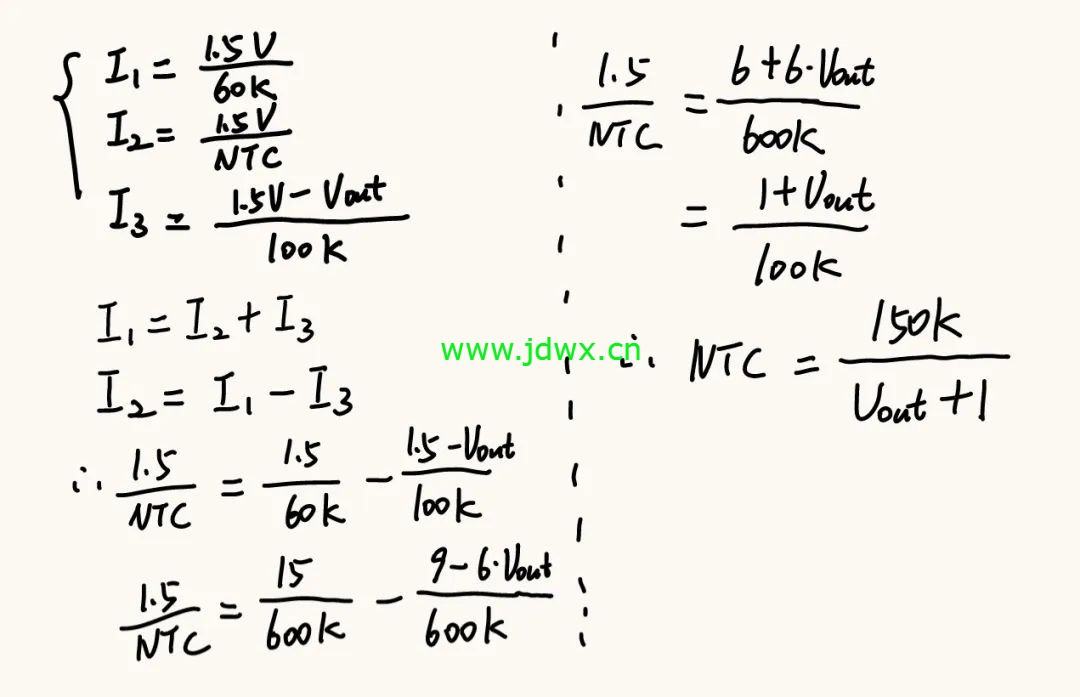 I₁ = 1.5V / 60k
I₂ = 1.5V / NTC
I₃ = 1.5V - Vout / 100k
I₁ = I₂ + I₃
I₂ = I₁ - I₃
∴ 1.5 / NTC = 1.5 / 60k - 1.5 - Vout / 100k
1.5 / NTC = 15 / 600k - 9 - 6·Vout / 600k
1.5 / NTC = 6 + 6·Vout / 600k
= 1 + Vout / 100k
∴ NTC = 150k / Vout + 1
www.jdwx.cn